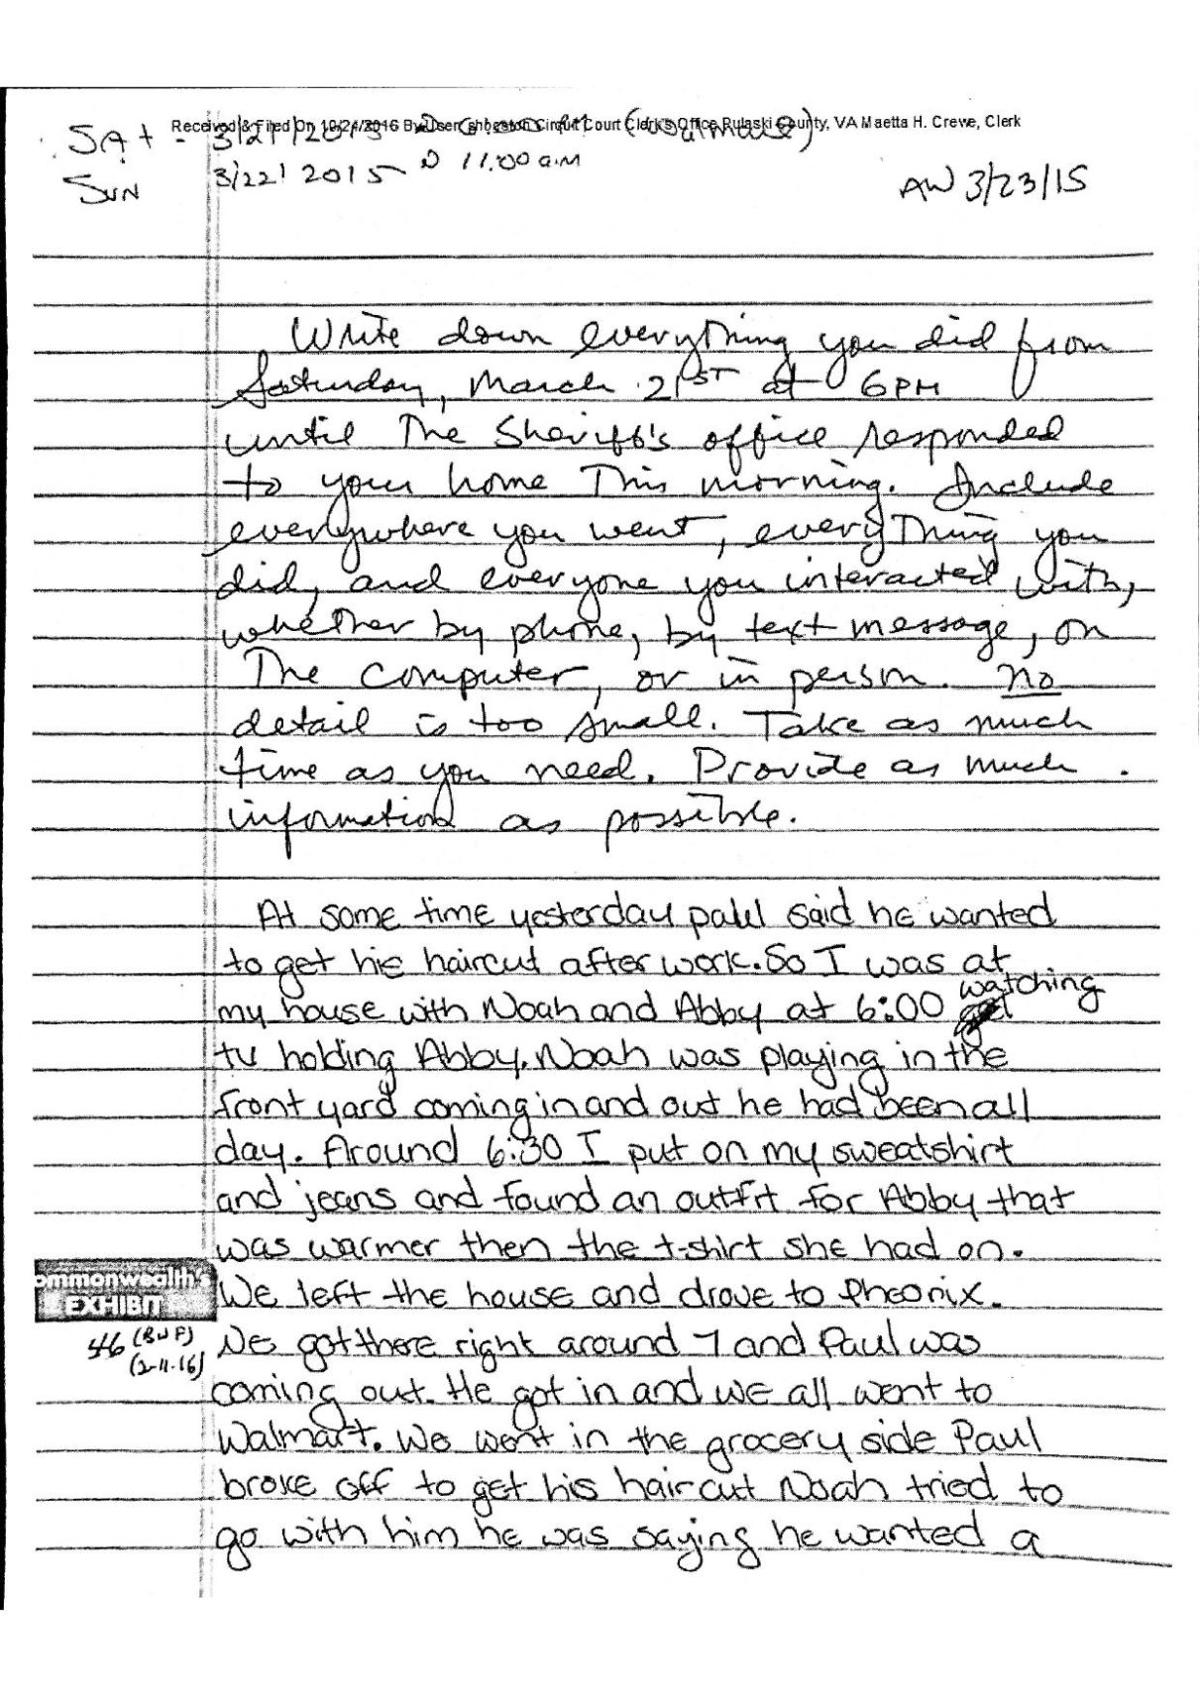 Received & Filed On 10/24/2016 By User: shogston Circuit Court Clerk's Office Pulaski County, VA Maetta H. Crewe, Clerk
SAt - 3/21/2015 @ 6:00 PM (Walmart)
SUN 3/22/2015 @ 11:00 a.m
AW 3/23/15
Write down everything you did from
Saturday, March 21ST at 6PM
until The Sheriff's office responded
to your home This morning. Include
everywhere you went, everything you
did, and everyone you interacted with,
whether by phone, by text message, on
The computer, or in person. no
detail is too small. Take as much
time as you need. Provide as much
information as possible.
At some time yesterday paul said he wanted
to get his haircut after work. So I was at
my house with Noah and Abby at 6:00 watching
tv holding Abby. Noah was playing in the
front yard coming in and out he had been all
day. Around 6:30 I put on my sweatshirt
and jeans and found an outfit for Abby that
was warmer then the t-shirt she had on.
We left the house and drove to Pheonix.
We got there right around 7 and Paul was
coming out. He got in and we all went to
Walmart. We went in the grocery side Paul
broke off to get his haircut Noah tried to
go with him he was saying he wanted a
ommonwealth's
EXHIBIT
46 (BWF)
(2-11-16)